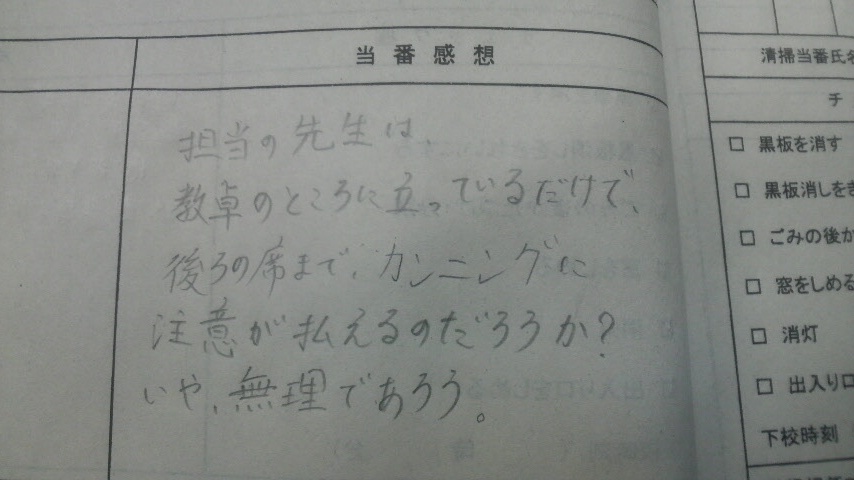 当番感想
担当の先生は、
教卓のところに立っているだけで、
後ろの席まで、カンニングに
注意が払えるのだろうか？
いや、無理であろう。
清掃当番氏名
チ
□ 黒板を消す
□ 黒板消しをき
□ ごみの後か
□ 窓をしめる
□ 消灯
□ 出入り口
下校時刻